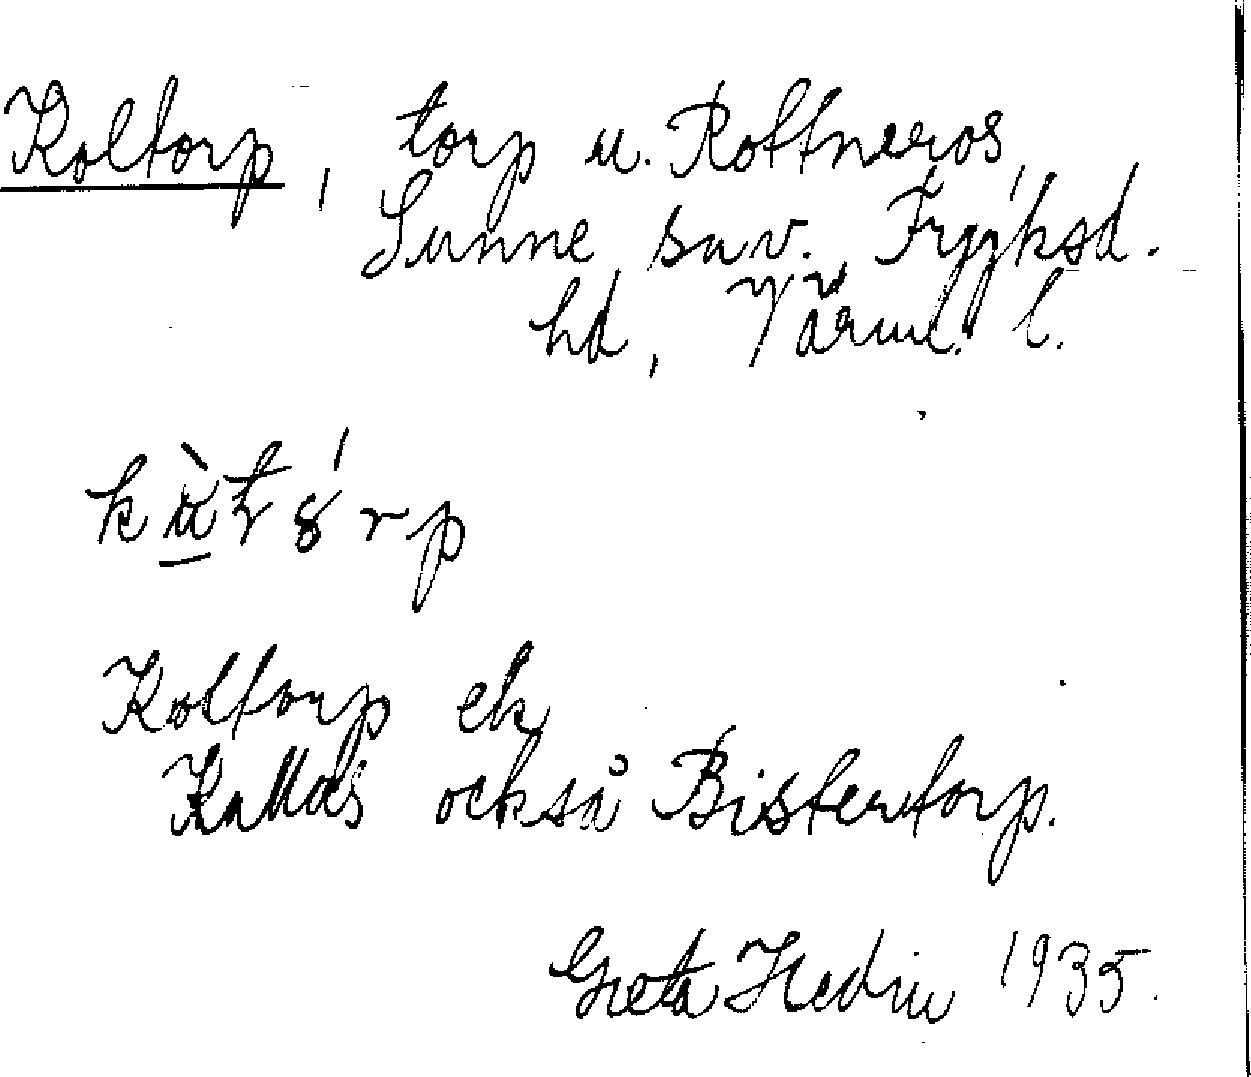 Koltorp, torp u. Rottneros,
Sunne snv. Fryksd.
hd, Värml. l.
Koltorp ek
Kallas också Bistertorp.
Greta Hedin 1935.